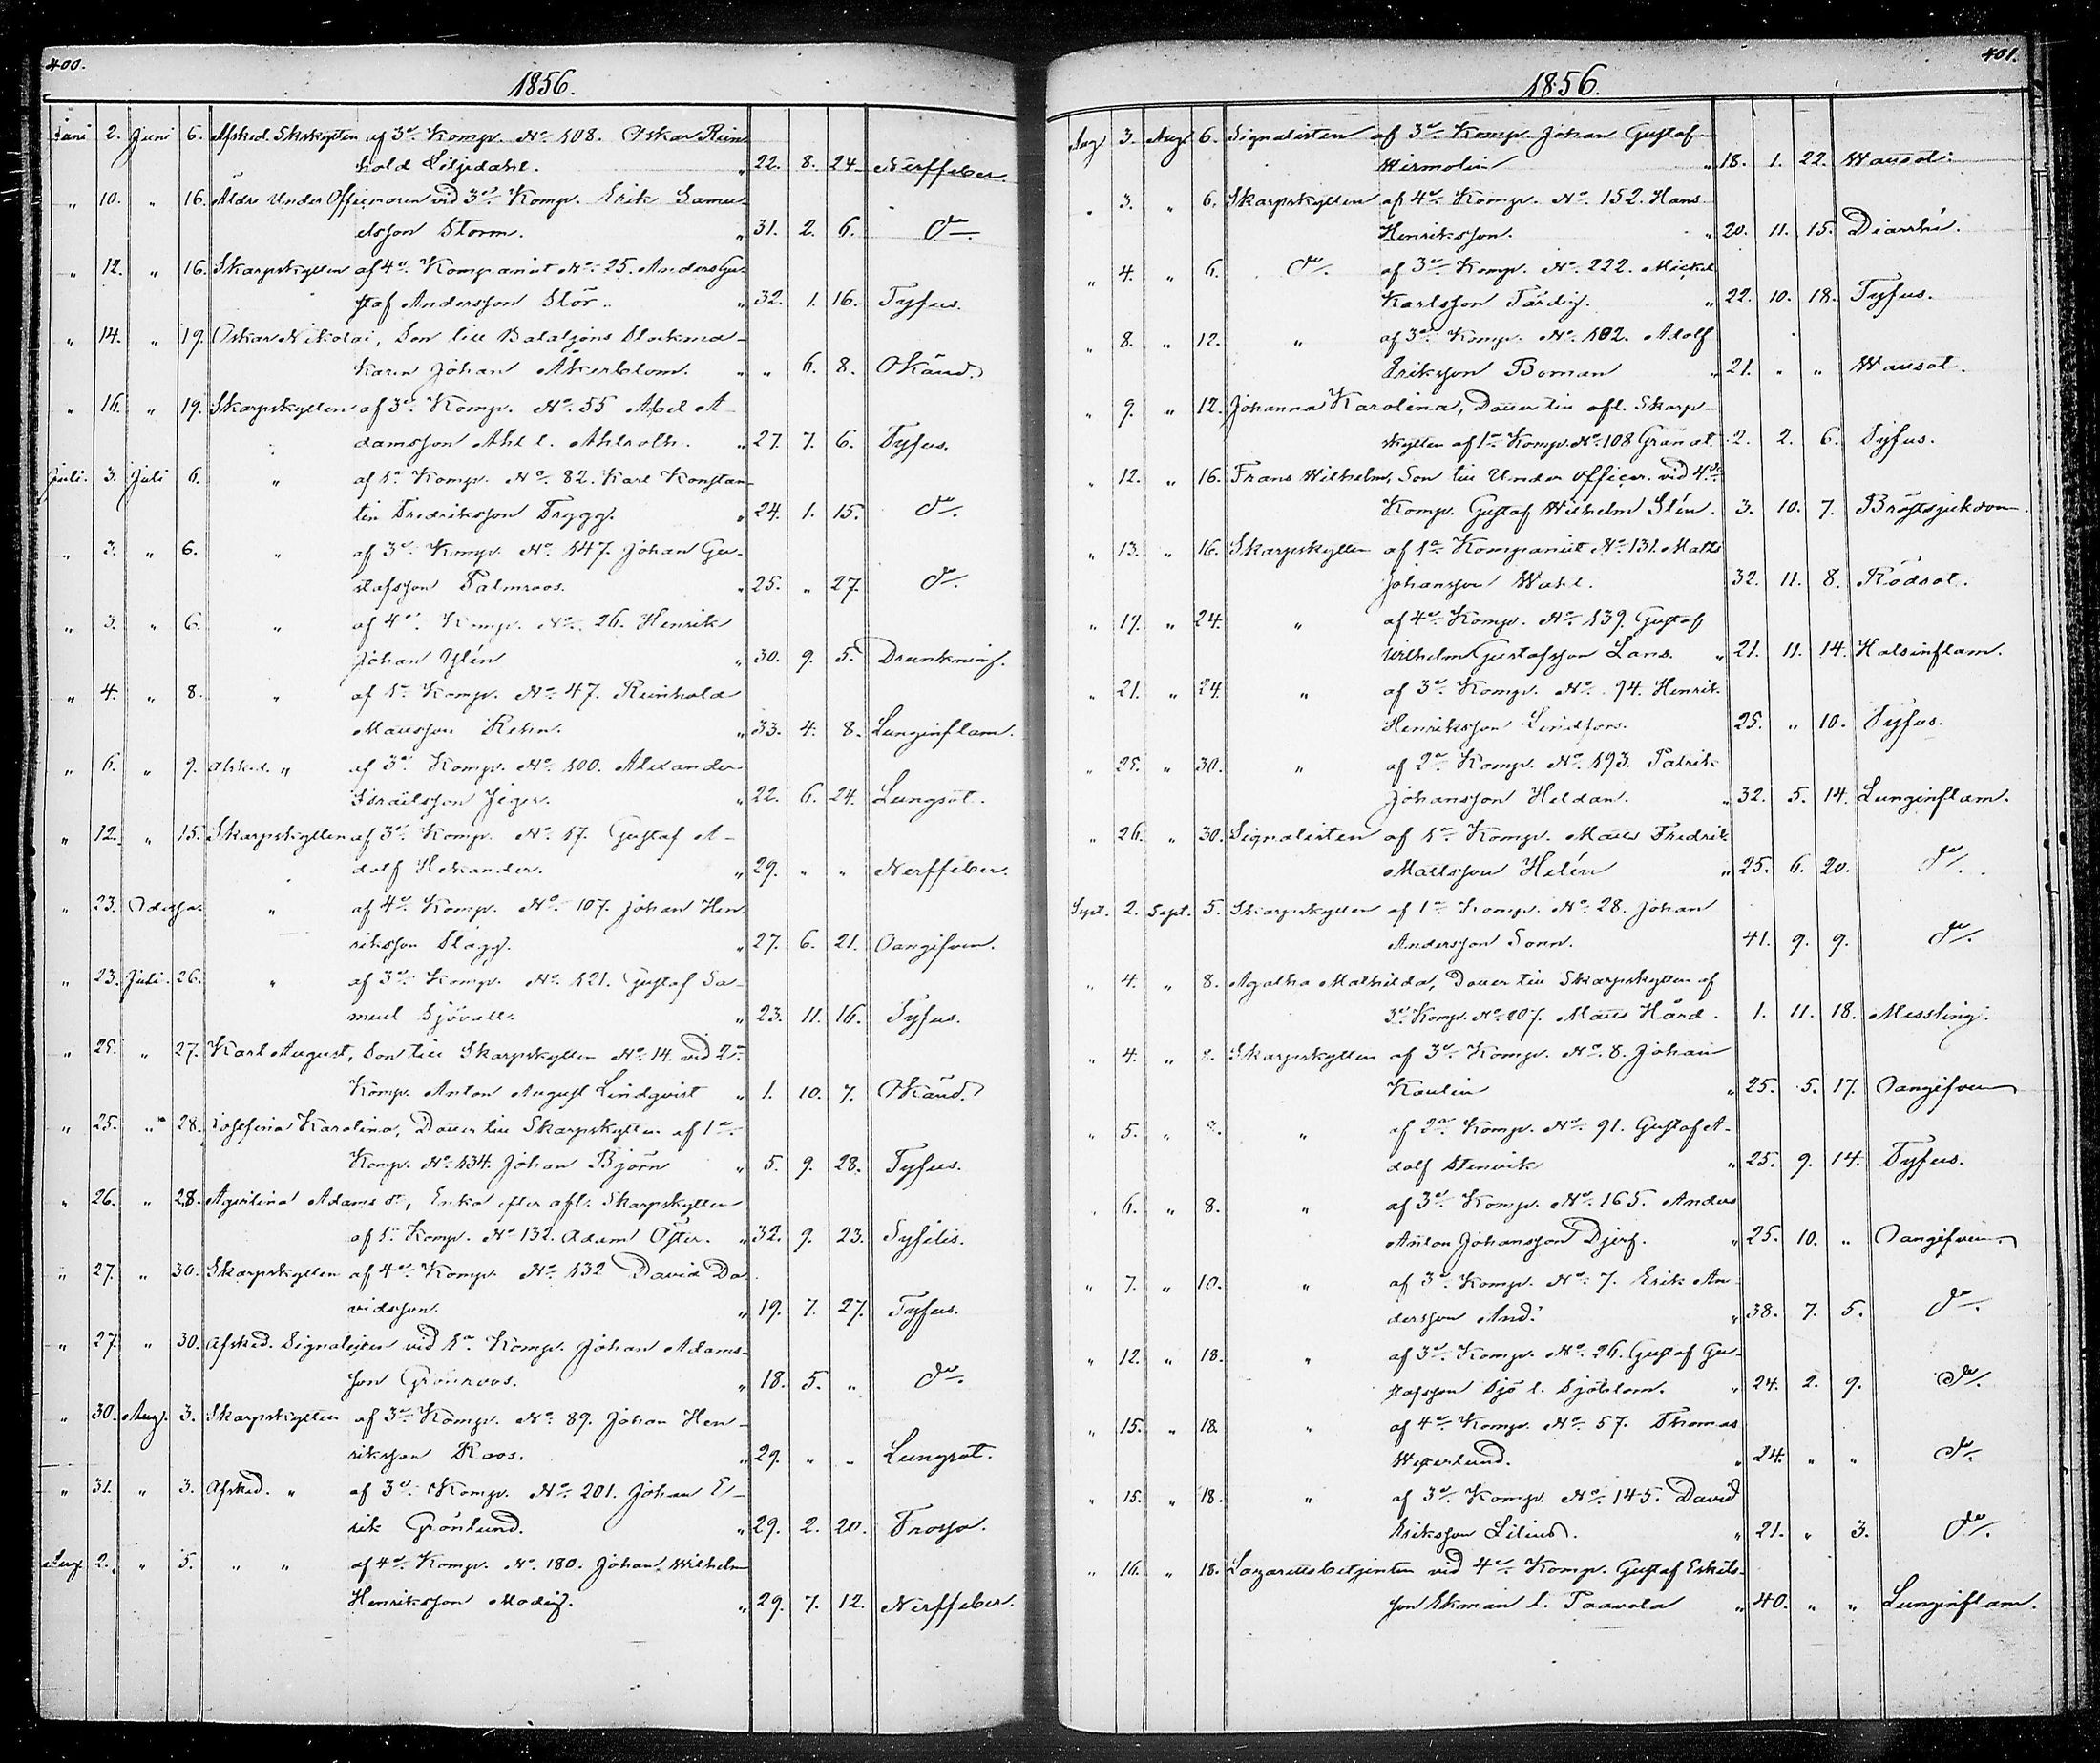 400.
1856.
Juni 2. Juni 6. Afsked. Skskytten af 3e Komp. No 108. Oskar Rein
hold Liljedahl. " 22. 8. 24. Nerffeber.
" 10. " 16. Äldre Under Officeraren vid 3e Komp. Erik Samu
elsson Storm. " 31. 2. 6. do
" 12. " 16. Skarpskytten af 4e Kompaniet No 25. Anders Gu
staf Andersson Stör. " 32. 1. 16. Tyfus.
" 14. " 19. Oskar Nikolai, Son till Bataljons Stockma
karen Johan Åkerblom. " " 6. 8. Okänd.
" 16. " 19. Skarpskytten af 3e Komp. No 55 Axel A
damsson Ahl l. Ahlroth. " 27. 7. 6. Tyfus.
Juli. 3. Juli 6. " af 1a Komp. No 82. Karl Konstan
tin Fredriksson Trygg. " 24. 1. 15. do
" 3. " 6. " af 3e Komp. No 147. Johan Gu
stafsson Palmroos. " 25. " 27. do
" 3. " 6. " af 4e Komp. No 26. Henrik
Johan Ylén " 30. 9. 5. Drunkning.
" 4. " 8. " af 1a Komp. No 47. Reinhold
Mansson Rehn. " 33. 4. 8. Lunginflam.
" 6. " 9. Afsked. " af 3e Komp. No 100. Alexander
Israelsson Jeger. " 22. 6. 24. Lungsot.
" 12. " 15. Skarpskytten af 3e Komp. No 17. Gustaf A
dolf Hekander. " 29. " " Nerffeber.
" 23. Odessa. " af 4e Komp. No 107. Johan Hen
riksson Slägg. " 27. 6. 21. Oangifven.
" 23. Juli. 26. " af 3e Komp. No 121. Gustaf Sa
muel Sjövall. " 23. 11. 16. Tyfus.
" 25. " 27. Karl August, Son till Skarpskytten No 14. vid 2a
Komp. Anton August Lindqvist " 1. 10. 7. Okänd.
" 25. " 28. Josefina Karolina, Dotter till Skarpskytten af 1a
Komp. No 134. Johan Björn " 5. 9. 28. Tyfus.
" 26. " 28. Agvilina Adams dr, Enka efter afl. Skarpskytten
af 1a Komp. No 132. Adam Öster. " 32. 9. 23. Syfilis.
" 27. " 30. Skarpskytten af 4e Komp. No 132 David Da
vidsson. " 19. 7. 27. Tyfus.
" 27. " 30. Afsked. Signalisten vid 1a Komp. Johan Adams
son Grönroos. " 18. 5. " do
" 30. Aug. 3. Skarpskytten af 3e Komp. No 89. Johan Hen
riksson Roos. " 29. " " Lungsot.
" 31. " 3. Afsked. " af 3e Komp. No 201. Johan E
rik Grönlund. " 29. 2. 20. Frossa.
Aug. 2. " 5. " " af 4e Komp. No 180. Johan Wilhelm
Henriksson Modig. " 29. 7. 12. Nerffeber.
401.
1856.
Aug. 3. Aug. 6. Signalisten af 3e Komp. Johan Gustaf
Wirmolin " 18. 1. 22. Wattusot.
" 3. " 6. Skarpskytten af 4e Komp. No 152. Hans
Henriksson. " 20. 11. 15. Diarrhé.
" 4. " 6. do af 3e Komp. No 222. Mickel
Karlsson Färdig. " 22. 10. 18. Tyfus.
" 8. " 12. " af 3e Komp. No 102. Adolf
Eriksson Boman " 21. " " Wattusot.
" 9. " 12. Johanna Karolina, Dotter till afl. Skarp
skytten af 1a Komp. No 108 Granat. 2. 2. 6. Tyfus.
" 12. " 16. Frans Wilhelm, Son till Under Officer. vid 4de
Komp. Gustaf Wilhelm Stén. 3. 10. 7. Bröstsjukdom.
" 13. " 16. Skarpskytten af 1a Kompaniet No 131. Matts
Johansson Wahl. 32. 11. 8. Rödsot.
" 19. " 24. " af 4e Komp. No 139. Gustaf
Wilhelm Gustafsson Lans. " 21. 11. 14. Halsinflam.
" 21. " 24. " af 3e Komp. No 94. Henrik
Henriksson Lindfors. 25. " 10. Tyfus.
" 25. " 30. " af 2a Komp. No 193. Patrik
Johansson Heldan. " 32. 5. 14. Lunginflam.
" 26. " 30. Signalisten af 1a Komp. Matts Fredrik
Mattsson Helén " 25. 6. 20. do
Sept. 2. Sept. 5. Skarpskytten af 1a Komp. No 28. Johan
Andersson Sonn. 41. 9. 9. do
" 4. " 8. Agatha Mathilda, Dotter till Skarpskytten af
3e Komp. No 207. Matts Hård. 1. 11. 18. Messling.
" 4. " 8. Skarpskytten af 3e Komp. No 8. Johan
Kaulin " 25. 5. 17. Oangifven
" 5. " 8. " af 2a Komp. No 91. Gustaf A
dolf Stenvik " 25. 9. 14. Tyfus.
" 6. " 8. " af 3e Komp. No 165. Anders
Anton Johansson Djerf. " 25. 10. " Oangifven.
" 7. " 10. " af 3e Komp. No 7. Erik An
dersson And. " 38. 7. 5. do
" 12. " 18. " af 3e Komp. No 26. Gustaf Gu
stafsson Sjö l. Sjöblom. " 24. 2. 9. do
" 15. " 18. " af 4e Komp. No 57. Thomas
Westerlund. " 24. " " do
" 15. " 18. " af 3e Komp. No 145. David
Eriksson Lilius. " 21. " 3. do
" 16. " 18. Lazarettsbetjenten vid 4e Komp. Gustaf Eskils
son Ekman l. Taavola " 40. " " Lunginflam.